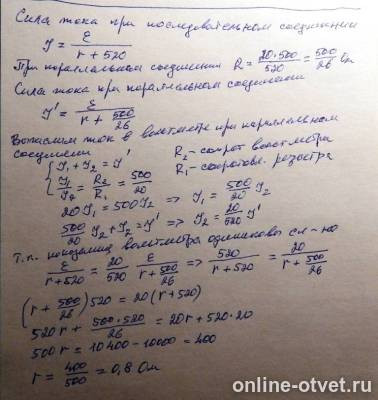 Сила тока при последовательном соединении
I = ε / (r + 520)
При параллельном соединении R = 20·500 / 520 = 500 / 26 Ом
Сила тока при параллельном соединении
I' = ε / (r + 500/26)
Вычислим ток в вольтметре при параллельном
соединении R₂ - сопрот вольтметра
{ I₁ + I₂ = I' R₁ - сопротовл. резистра
I₁/I₂ = R₂/R₁ = 500/20
20 I₁ = 500 I₂ => I₁ = 500/20 I₂
500/20 I₂ + I₂ = I' => I₂ = 20/520 I'
Т.п. показания вольтметра одинаковы сл-но
ε/(r+520) = 20/520 ε/(r + 500/26) => 520/(r+520) = 20/(r + 500/26)
(r + 500/26) 520 = 20 (r + 520)
520 r + 500·520/26 = 20r + 520·20
500 r = 10400 - 10000 = 400
r = 400/500 = 0,8 Ом
online-otvet.ru